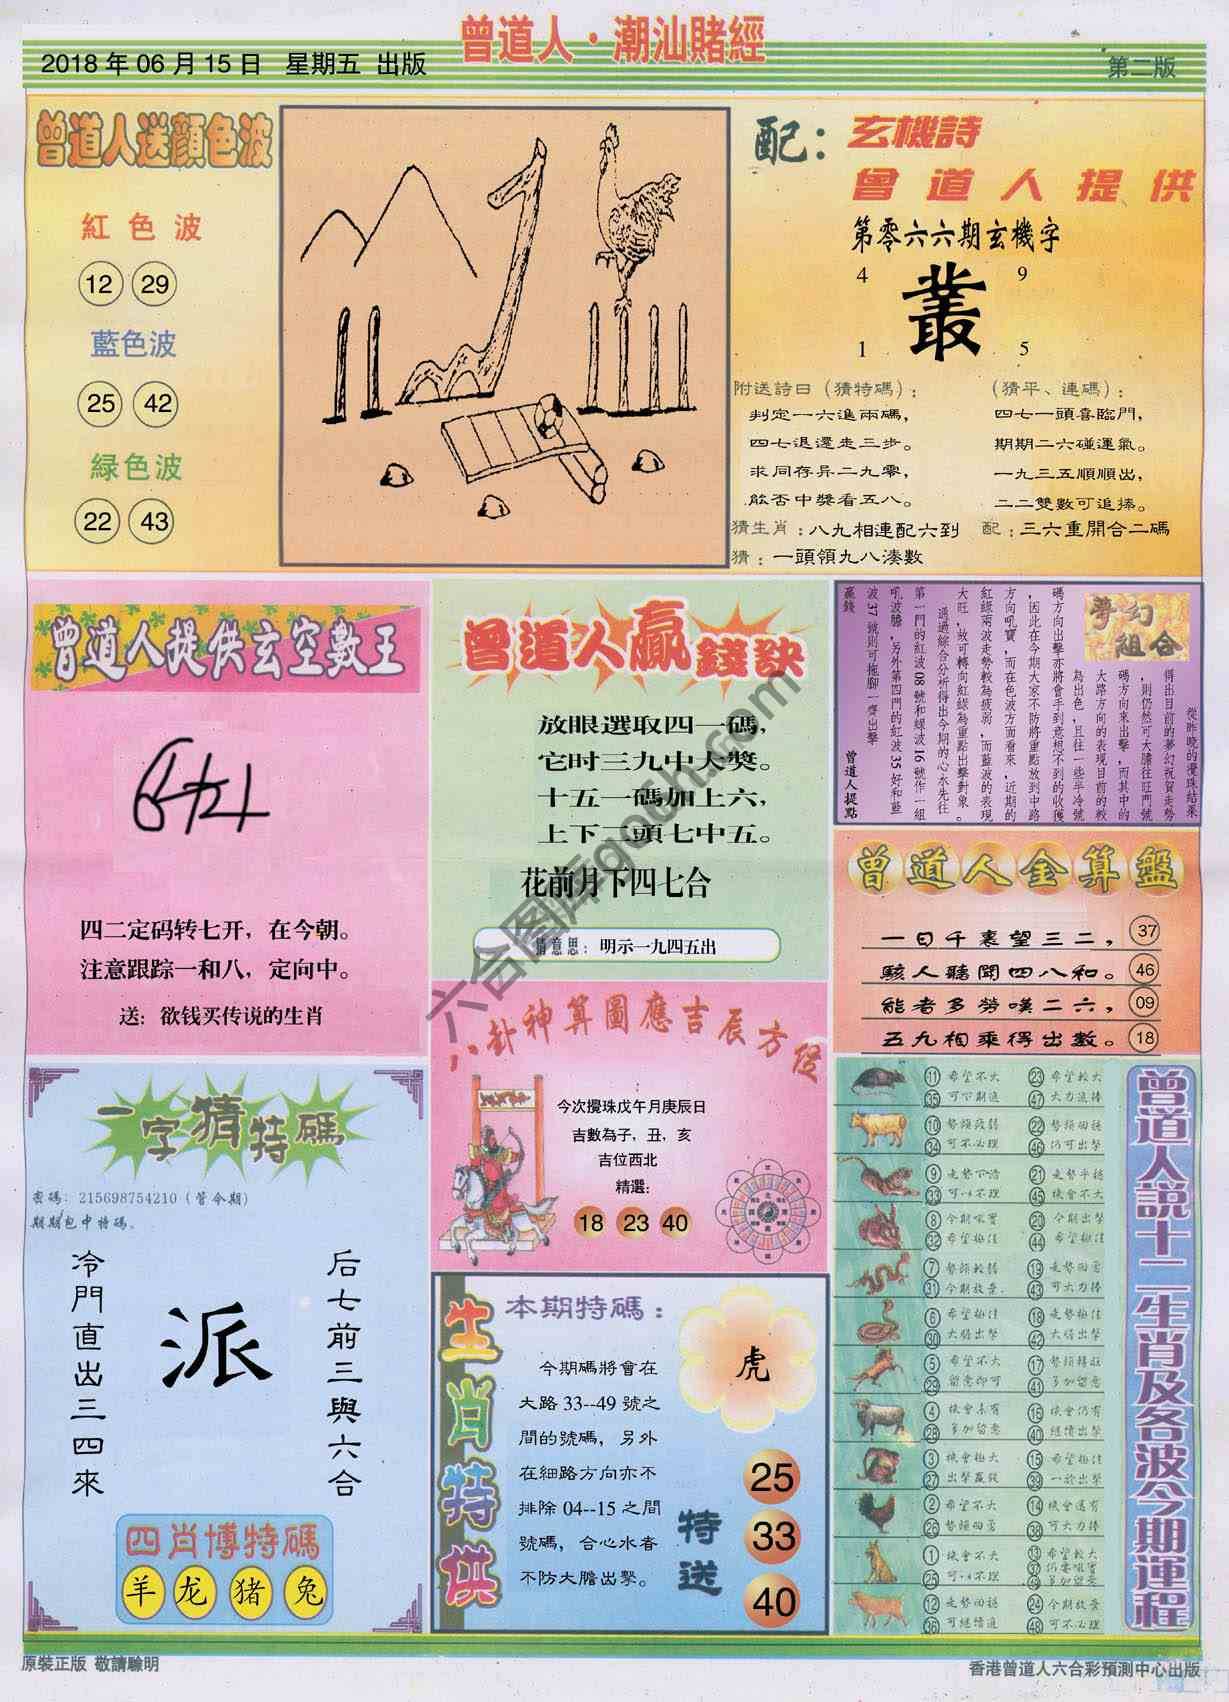 曾道人·潮汕賭經
2018年06月15日 星期五 出版
第二版
曾道人送顏色波
紅色波
12 29
藍色波
25 42
緑色波
22 43
配：玄機詩
曾道人提供
第零六六期玄機字
4 9
叢
1 5
附送詩曰（猜特碼）：
判定一六進兩碼，
四七退還走三步。
求同存异二九零，
能否中獎看五八。
（猜平、連碼）：
四七一頭喜臨門，
期期二六碰運氣。
一九三五順順出，
二二雙數可追捧。
猜生肖：八九相連配六到
配：三六重開合二碼
猜：一頭領九八湊數
曾道人提供玄空數王
四二定码转七开，在今朝。
注意跟踪一和八，定向中。
送：欲钱买传说的生肖
曾道人贏錢訣
放眼選取四一碼，
它时三九中大獎。
十五一碼加上六，
上下二頭七中五。
花前月下四七合
猜意思：明示一九四五出
夢幻組合
從昨晚的攪珠結果
得出目前的夢幻祝賀走勢
，則仍然可大膽往旺門號
碼方向來出擊，而其中的
大路方向的表現目前的較
為出色，且往一些半冷號
碼方向出擊亦將會手到意想不到的收獲
，因此在今期大家不防將重點放到中路
方向吼寶，而在色波方面看來，近期的
紅綠兩波走勢較為疲弱，而藍波的表現
大旺，故可轉向紅綠為重點出擊對象。
通過綜合分析得出今期的心水先往
第一門的紅波08號和綠波16號作一組
吼波膽，另外第四門的紅波35好和藍
波37號則可拖腳一齊出擊
贏錢
曾道人提點
曾道人金算盤
一日千裏望三二， 37
駭人聽聞四八和。 46
能者多勞嘆二六， 09
五九相乘得出數。 18
八卦神算圖應吉辰方位
今次攪珠戊午月庚辰日
吉數為子，丑，亥
吉位西北
精選：
18 23 40
一字猜特碼
密碼：215698754210（管今期）
期期包中特碼。
后七前三與六合
派
冷門直出三四來
四肖博特碼
羊 龙 猪 兔
生肖特供
本期特碼：
虎
今期碼將會在
大路33--49號之
間的號碼，另外
在細路方向亦不
排除04--15之間
號碼，合心水者
不防大膽出擊。
特送
25
33
40
曾道人説十二生肖及各波今期運程
11 希望不大 23 希望較大
35 可下期追 47 大力追捧
10 勢頭疲弱 22 勢頭回穩
34 可不必理 46 仍可出擊
9 走勢下滑 21 走勢平穩
33 可以不理 45 機會不大
8 今期吼寶 20 今期出擊
32 希望極佳 44 希望極佳
7 勢頭較弱 19 走勢回勇
31 今期放棄 43 可大力捧
6 希望極佳 18 走勢極佳
30 大膽出擊 42 大膽出擊
5 希望不大 17 勢頭轉旺
29 留意即可 41 多加留意
4 機會未有 16 機會仍有
28 多加留意 40 繼續出擊
3 機會極大 15 希望極佳
27 出擊贏錢 39 一於出擊
2 希望不大 14 機會還有
26 勢頭回勇 38 可大力捧
1 機會不大 13 希望較大
25 可以不理 37 仍要吼寶
49 多加留意
12 走勢回穩 24 今期放棄
36 可繼續追 48 可不必理
原裝正版 敬請騐明
香港曾道人六合彩預測中心出版
六合图库qoqh.com